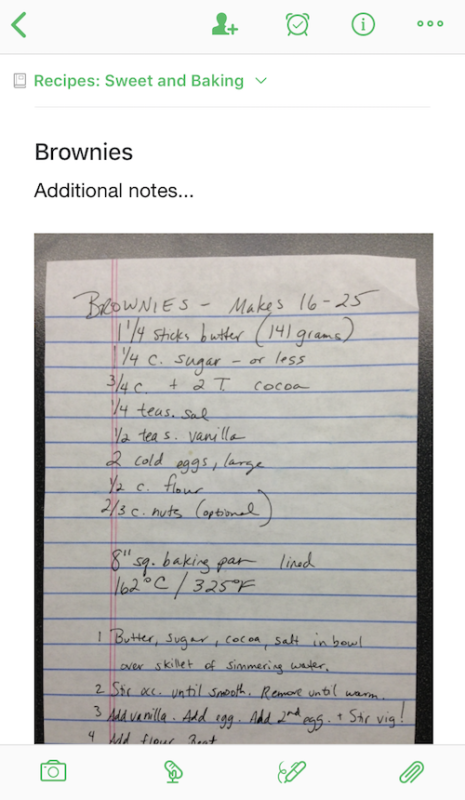 Recipes: Sweet and Baking
Brownies
Additional notes...
BROWNIES - Makes 16-25
1 1/4 sticks butter (141 grams)
1 1/4 c. sugar - or less
3/4 c. + 2 T. cocoa
1/4 teas. sal
1/2 teas. vanilla
2 cold eggs, large
1/2 c. flour
2/3 c. nuts (optional)
8" sq. baking pan lined
162°C / 325°F
1 Butter, sugar, cocoa, salt in bowl
over skillet of simmering water.
2 Stir occ. until smooth. Remove until warm.
3 Add vanilla. Add egg. Add 2nd egg. + Stir vig!
4 Add flour Beat